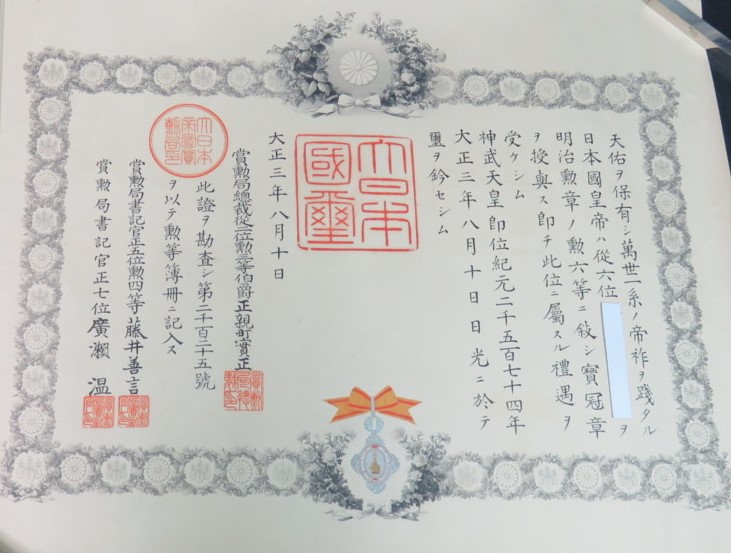 天佑ヲ保有シ萬世一系ノ帝祚ヲ踐タル
日本國皇帝ハ從六位
ヲ
明治勲章ノ勲六等ニ敍シ寳冠章
ヲ授與ス即チ此位ニ屬スル禮遇ヲ
受ケシム
神武天皇即位紀元二千五百七十四年
大正三年八月十日日光ニ於テ
璽ヲ鈐セシム
大日本
國璽
大正三年八月十日
賞勲局總裁從二位勲三等伯爵正親町實正
大日本
帝國賞
勲局印
此證ヲ勘査シ第二千百二十五號
ヲ以テ勲等簿冊ニ記入ス
賞勲局書記官正五位勲四等藤井善言
賞勲局書記官正七位廣瀬溫